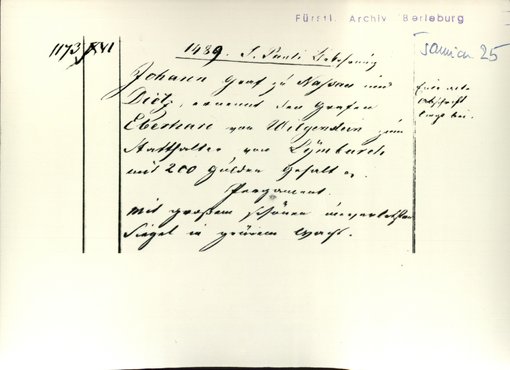 Fürstl. Archiv Berleburg
1173
1489. S. Pauli Bekehrung
Januar 25
Johann Graf zu Nassau und
Dietz, ernennt den Grafen
Eberhard von Witgenstein zum
Statthalter von Lymburch
mit 200 Gulden Gehalt
Pergament.
mit großem schönen unverletzten
Siegel in grünem Wachs.
Eine
Abschrift
liegt bei.